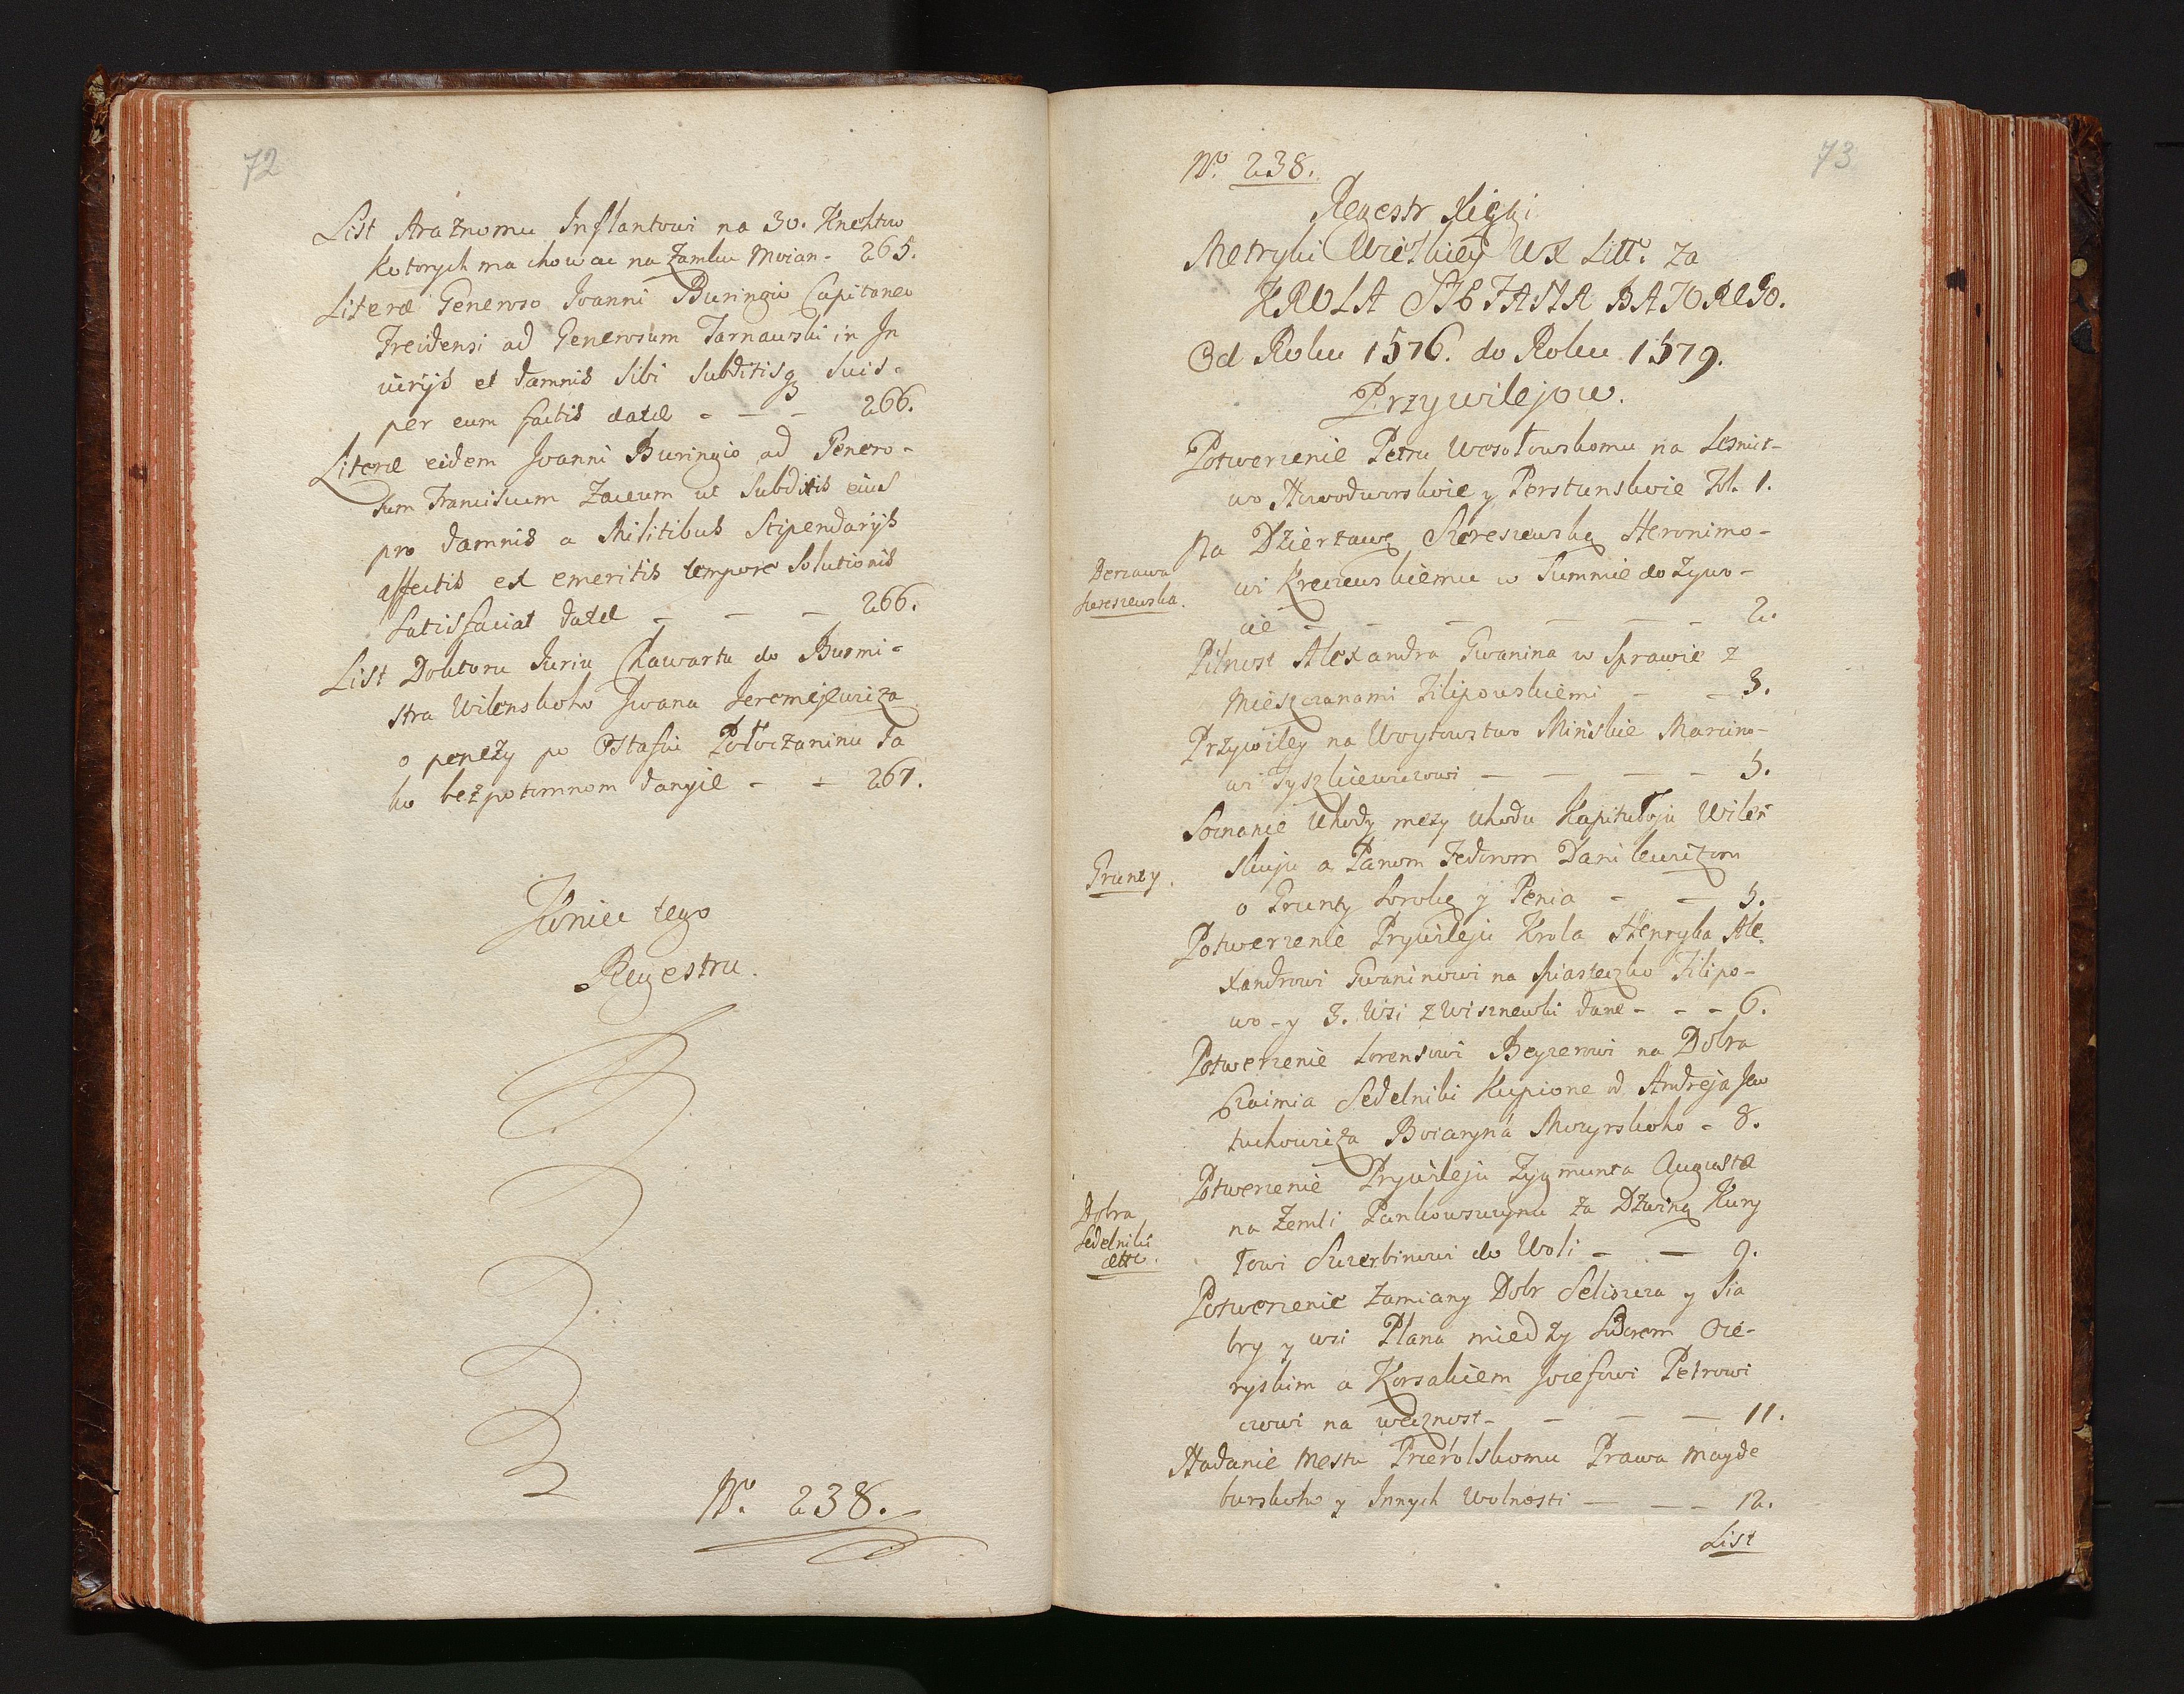 72
List Arażnomu Inflantowi na 30. Knehtow
kotorych ma chowac na Zamku Moian - 265.
Literæ Generoso Joanni Buringio Capitaneo
Treidensi ad Generosum Tarnawski in In
iurijs et damnis sibi subditisq suis -
per eum factis datæ - — — 266.
Literæ eidem Joanni Buringio ad Genero -
sum Franciscum Zaucum ut subditis eius
pro damnis a Militibus Stipendarijs
affectis ex emeritis tempore solutionis
satisfaciat datæ - — — 266.
List Doktoru Juriu Chawartu do Burmi -
stra Wilenskoho Jwana Jeremejewicza
o penezy po Ostafiu Połoczaninu Ja
ko bezpotomnom danyie - - 267.
Koniec tego
Regestru.
No. 238.
73
No. 238.
Regestr Xięgi
Metryki Wiel'kiey WX Litt. za
KROLA STEFANA BATOREGO.
Od Roku 1576. do Roku 1579.
Przywilejow.
Potwerzenie Petru Wesołowskomu na Lesnict-
wo Nowodworskoie y Perstunskoie Fol. 1.
Na Dzierżawę Szereszewską Heronimo -
wi Kreczewskiemu w Summie do Zywo -
cie - - - — — - 2.
Derzawa
szereszewska.
Pilnost Alexandra Gwanina w Sprawie z
Mieszczanami Filipowskiemi - - 3.
Przywiley na Woytowstwo Minskie Marcino-
wi Tyszkiewiczowi — — — - 5.
Soznanie Uhody mezy Uhodu Kapitułoju Wilen
skuju a Panom Fedorom Danilewiczom
o Grunty Soroku y Penia - — 5.
Grunty.
Potwerzenie Prywileju Krola Henryka Ale
xandrowi Gwaninowi na Miasteczko Filipo -
wo - y 3. Wsi z Wisznewki dane - - - 6.
Potwerzenie Lorensowi Beyzerowi na Dobra
Czaimia Sedelniki Kupione od Andreja Jew
tuchowicza Boiaryna Mozyrskoho - 8.
Potwerzenie Prywileju Zygmunta Augusta
na Zemli Pankowszczynu za Dzwiną Kury
łowi Szczerbinowi do Woli - — 9.
Dobra
Sedelniki
ettc.
Potwerzenie Zamiany Dobr Seliszcza y Sia
bry y wsi Plana miedzy Sidorem Ozie-
ryskim a Korsakiem Jozefowi Petrowi
czowi na wecznost - — — — 11.
Nadanie Mestu Prierolskomu Prawa Mayde
burskoho y Innych Wolnosti — — - 12.
List